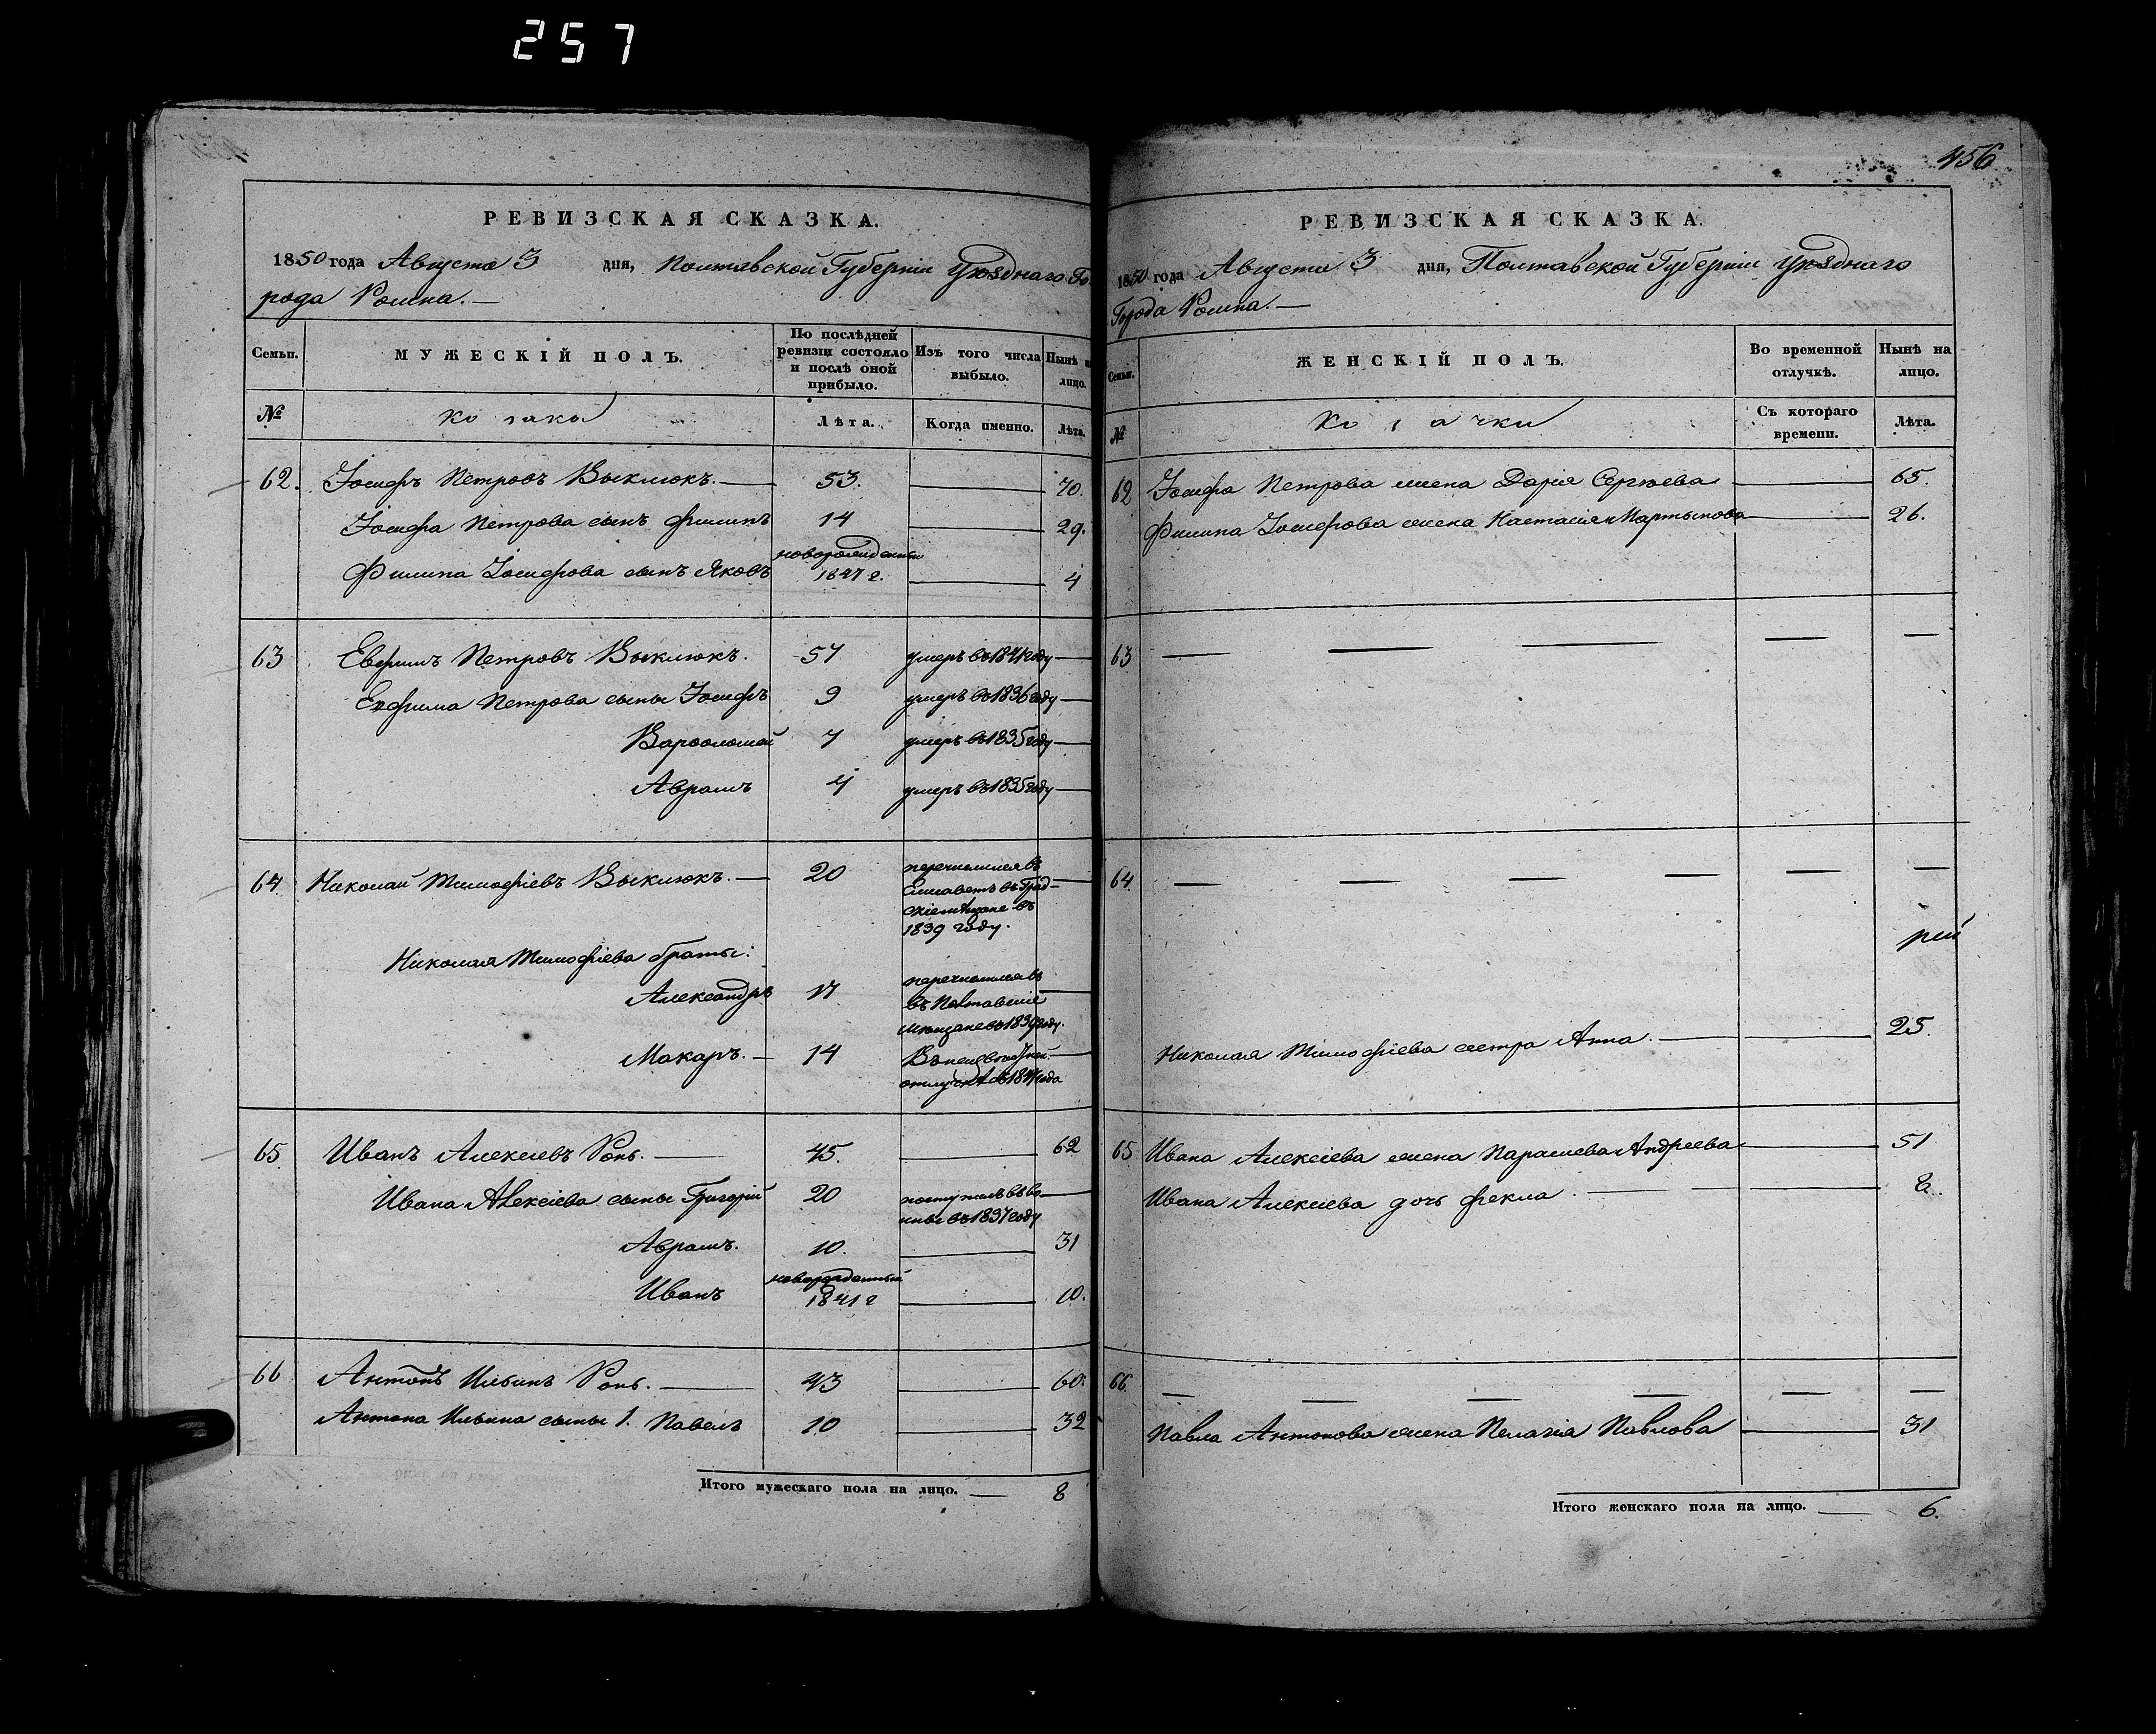 257
РЕВИЗСКАЯ СКАЗКА.
1850 года Августа 3 дня, Полтавской Губерніи Уѣзднаго Го-
рода Ромна.—
Семьи.
МУЖЕСКІЙ ПОЛЪ.
По послѣдней ревизіи состояло и послѣ оной прибыло.
Изъ того числа выбыло.
Нынѣ на лицо.
№
Козаки
Лѣта.
Когда именно.
Лѣта.
62. Іосифъ Петровъ Выклюкъ.— 53. — 70.
Іосифа Петрова сынъ Филипъ 14 — 29.
Филипа Іосифова сынъ Яковъ новорожденный 1847 г. — 4
63 Евфимъ Петровъ Выклюкъ. 57 умеръ въ 1841 году —
Евфима Петрова сыны Іосифъ 9 умеръ въ 1836 году —
Варфоломей 7 умеръ въ 1835 году —
Аврамъ 4 умеръ въ 1835 году —
64. Николай Тимофіевъ Выклюкъ.— 20 перечислился въ
Елисаветъ въ Град-
скіе мѣщане въ
1839 году.
Николая Тимофіева браты:
Александръ 17 перечислился въ
въ Полтавскіе
мѣщане въ 1839 году.
Макаръ.— 14
65. Иванъ Алексіевъ Ронь.— 45. — 62
Ивана Алексіева сыны Григорій 20 поступилъ въ во-
ины въ 1837 году
Аврамъ. 10. — 31
Иванъ новорожденный 1841 г — 10.
66 Антонъ Ильинъ Ронь.— 43 — 60.
Антона Ильина сыны 1. Павелъ 10 — 32
Итого мужескаго пола на лицо. — 8
456
РЕВИЗСКАЯ СКАЗКА.
1850 года Августа 3 дня, Полтавской Губерніи Уѣзднаго
Города Ромна.—
Семьи.
ЖЕНСКІЙ ПОЛЪ.
Во временной отлучкѣ.
Нынѣ на лицо.
№
Козачки
Съ котораго времени.
Лѣта.
62 Іосифа Петрова жена Дарія Сергѣева — 65.
Филипа Іосифова жена Настасія Мартынова — 26.
63 — — — — —
64. — — — — — —
рей
Николая Тимофіева сестра Анна.— — 25.
65. Ивана Алексіева жена Парасцева Андреева — 51
Ивана Алексіева дочь Фекла.— — 8.
66. — — — — —
Павла Антонова жена Пелагія Павлова — 31
Итого женскаго пола на лицо. — 6.